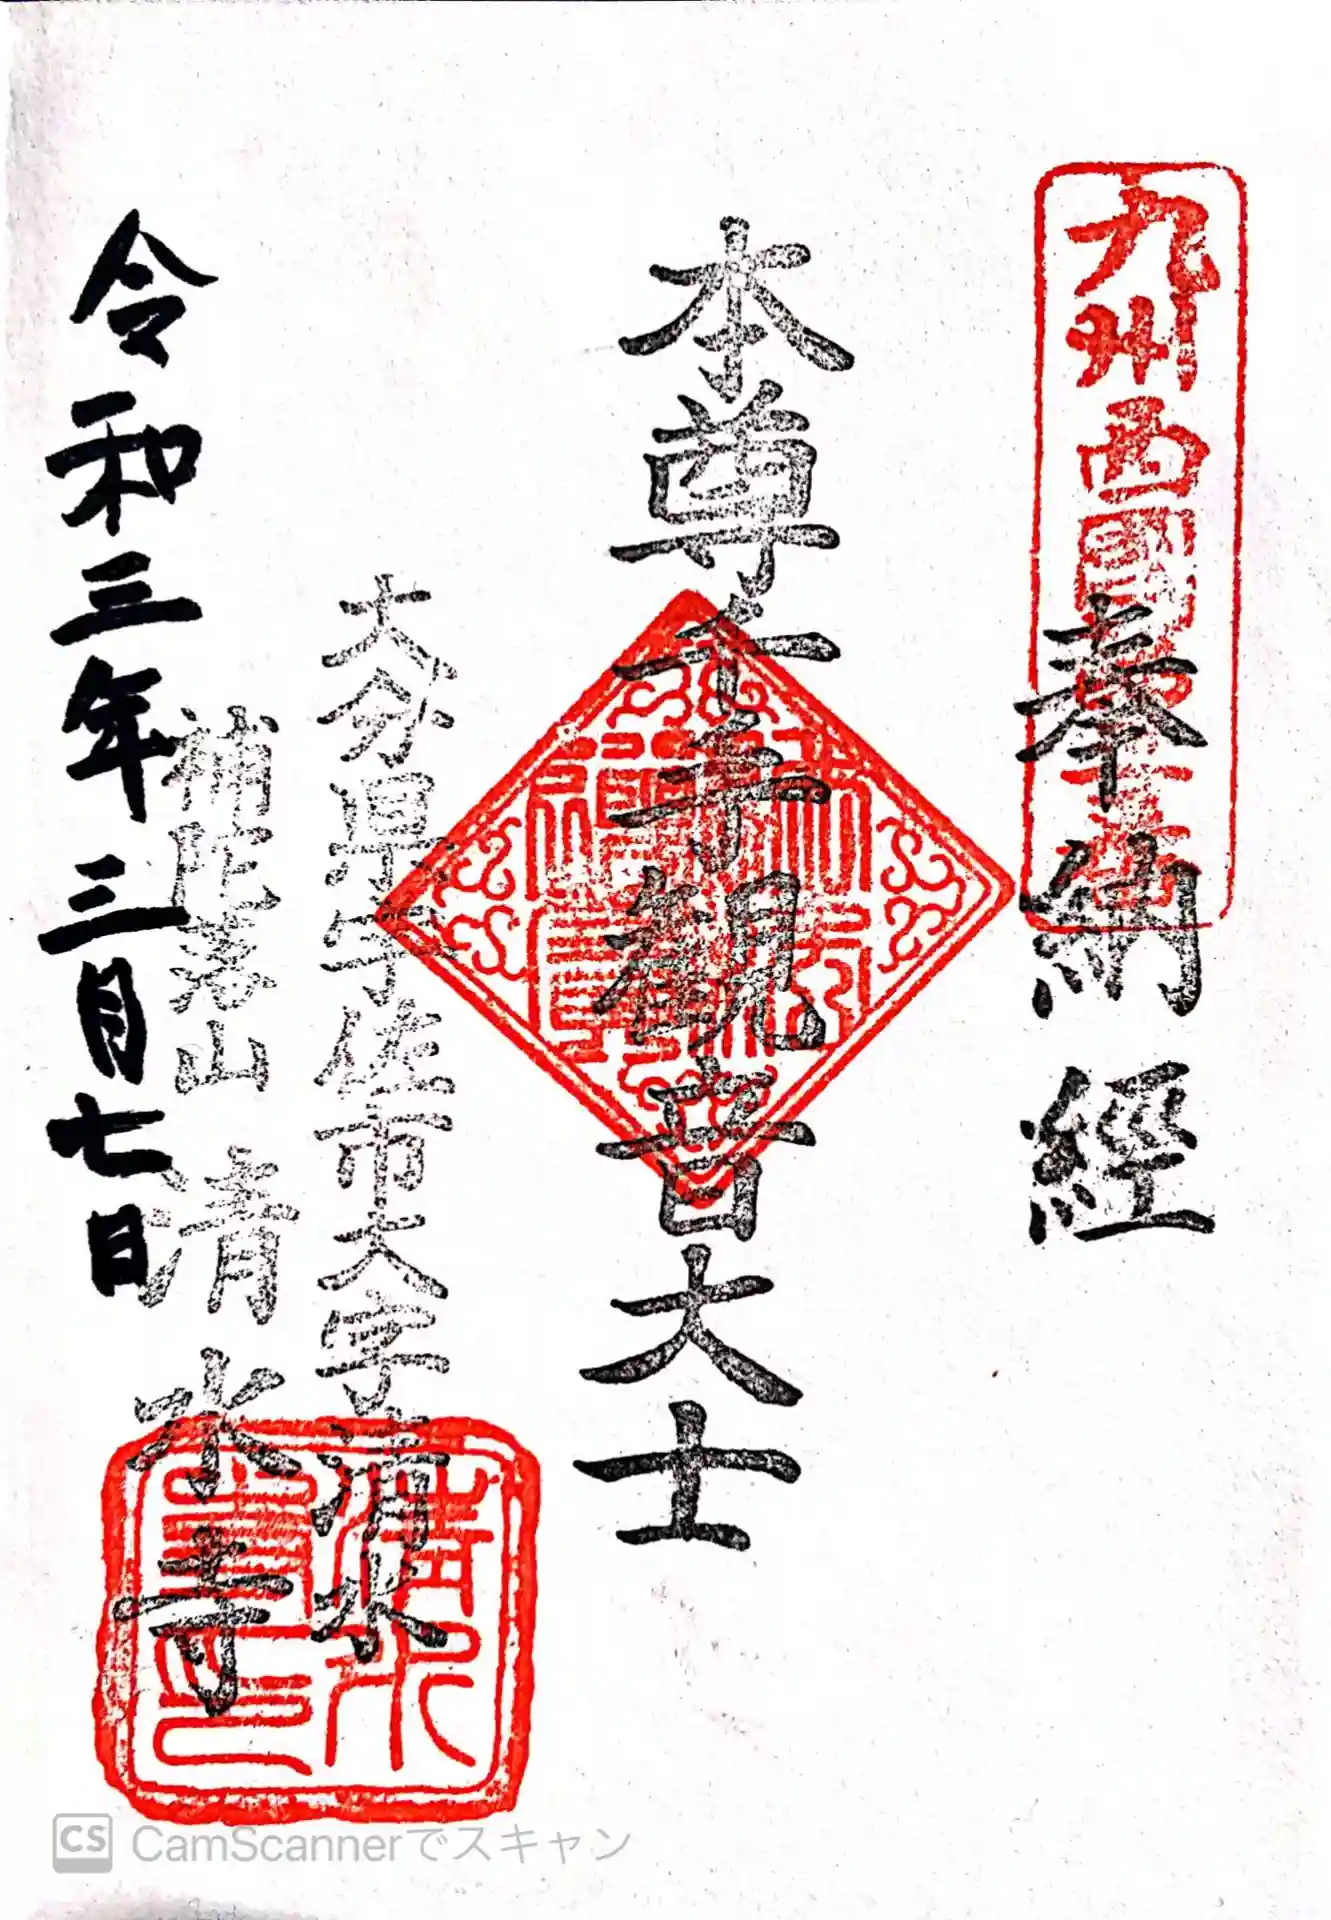 九州西國
奉納經
本尊千手觀音大士
大分県宇佐市大字清水
補陀落山 清水寺
令和三年三月七日
CS CamScannerでスキャン